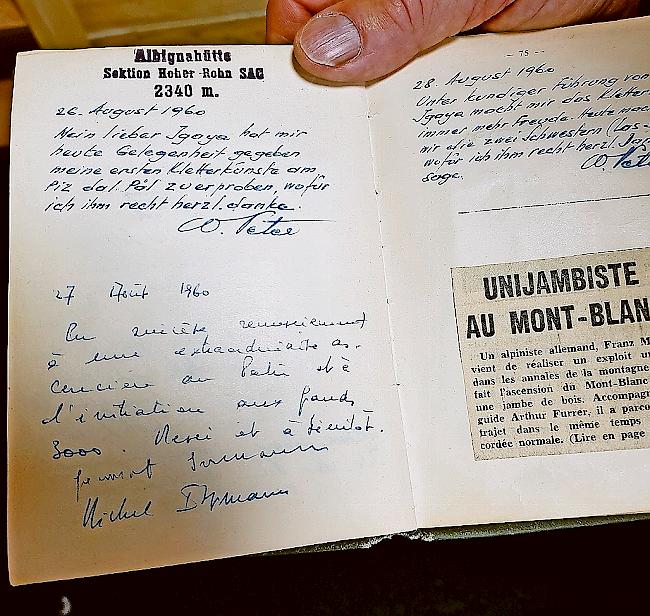 Albignahütte
Sektion Hoher-Rohn SAC
2340 m.
26. August 1960
Mein lieber Igaya hat mir
heute Gelegenheit gegeben
meine ersten Kletterkünste am
Piz dal Päl zu erproben, wofür
ich ihm recht herzl. danke.
W. Peter
27 Août 1960
En sincère remerciement
à une extraordinaire as-
cencion au et à
l'initiation aux grands
3000. Merci et à bientôt.
Michel
- 75 -
28. August 1960
Unter kundiger Führung von
Igaya macht mir das Kletter
immer mehr Freude. Heute
mir die zwei Schwestern (Las
wofür ich ihm recht herzl.
sage.
W. Pete
UNIJAMBISTE
AU MONT-BLAN
Un alpiniste allemand, Franz M
vient de réaliser un exploit un
dans les annales de la montagne
fait l'ascension du Mont-Blanc
une jambe de bois. Accompagn
guide Arthur Furrer, il a parco
trajet dans le même temps
cordée normale. (Lire en page